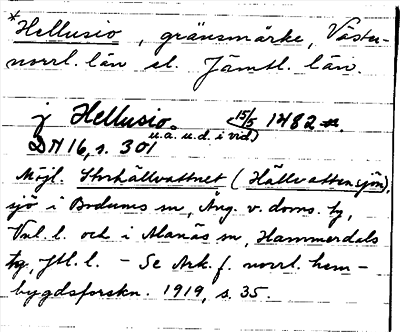 *Hellusio, gränsmärke, Väster-
norrl. län el. Jämtl. län.
j Hellusio <15/5 1482 *.
DN 16, s. 301 u.å. u.d. i vid)
Möjl. Storhällvattnet (Hällvattensjön),
sjö i Bodums sn, Ång. v. doms. tg,
Vnl. l. och i Alanäs sn, Hammerdals
tg, Jtl. l. - Se Ark. f. norrl. hem-
bygdsforskn. 1919, s. 35.